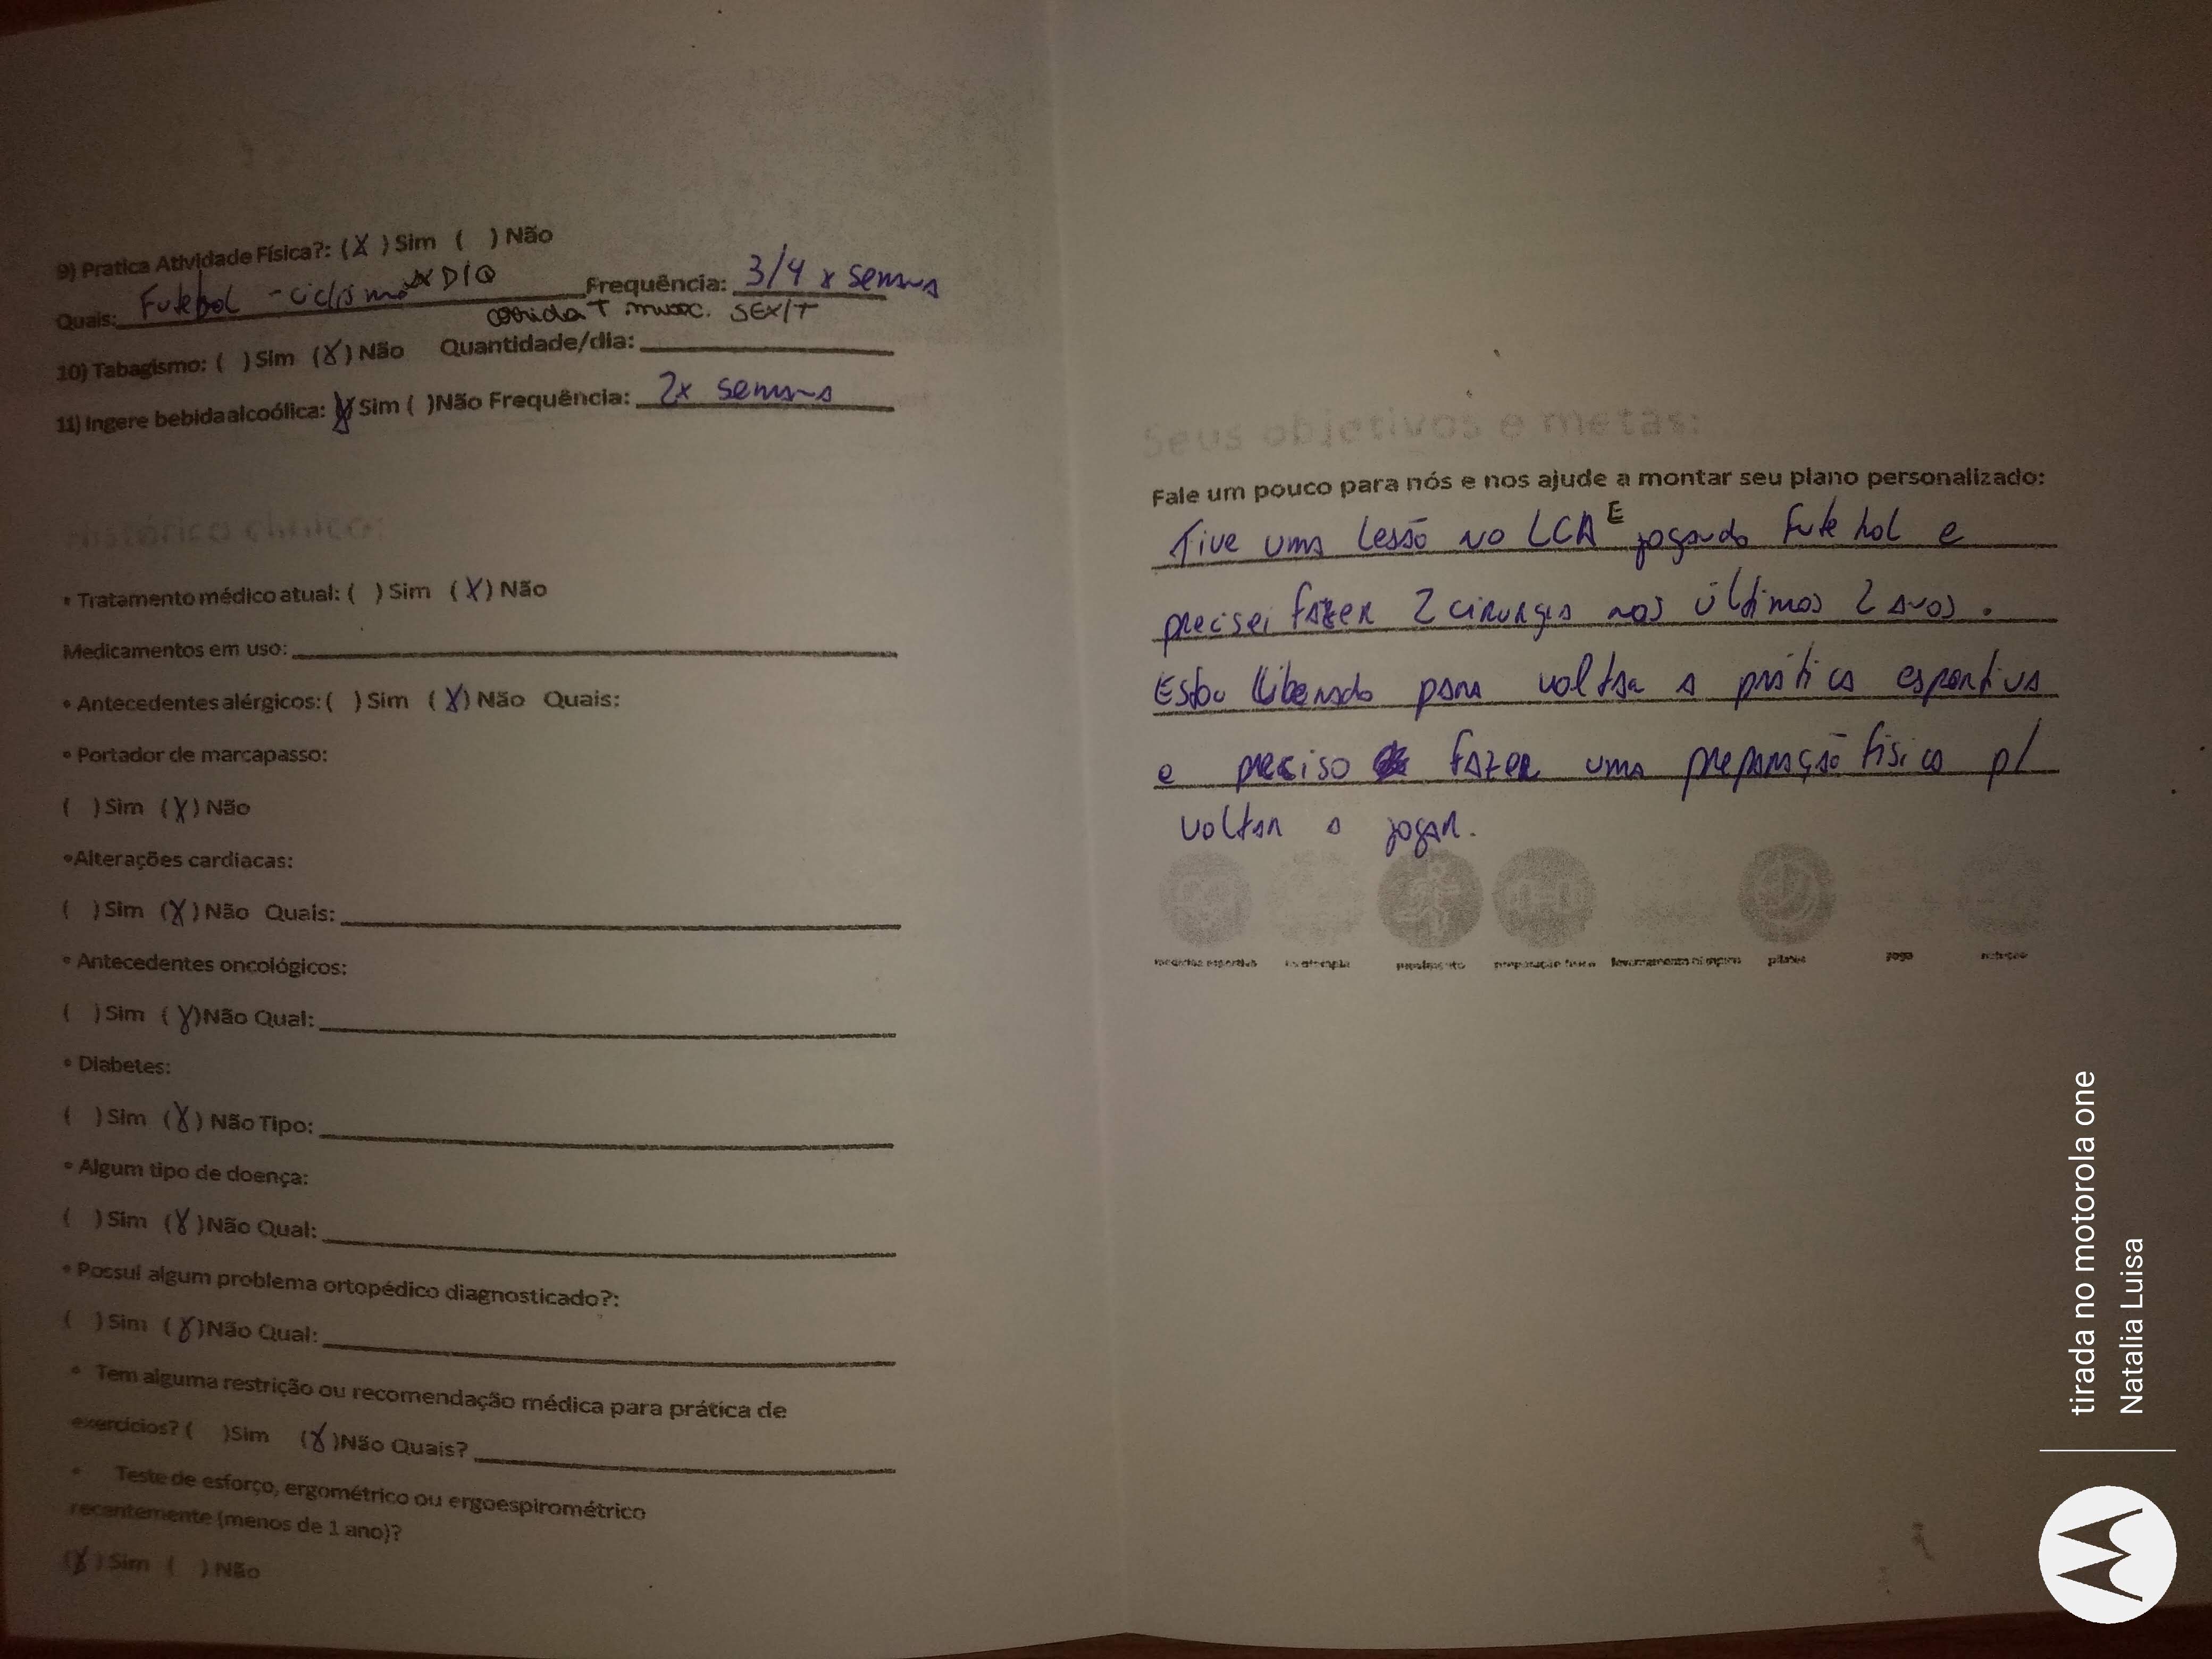 9) Pratica Atividade Física?: (X) Sim ( ) Não
Quais: Futebol - ciclismo XDIO Frequência: 3/4 x semana
corrida + musc. SEX/T
10) Tabagismo: ( ) Sim (X) Não Quantidade/dia:
11) Ingere bebida alcoólica: (X) Sim ( ) Não Frequência: 2x semana
Histórico clínico:
• Tratamento médico atual: ( ) Sim (X) Não
Medicamentos em uso:
• Antecedentes alérgicos: ( ) Sim (X) Não Quais:
• Portador de marcapasso:
( ) Sim (X) Não
• Alterações cardíacas:
( ) Sim (X) Não Quais:
• Antecedentes oncológicos:
( ) Sim (X) Não Qual:
• Diabetes:
( ) Sim (X) Não Tipo:
• Algum tipo de doença:
( ) Sim (X) Não Qual:
• Possui algum problema ortopédico diagnosticado?:
( ) Sim (X) Não Qual:
• Tem alguma restrição ou recomendação médica para prática de
exercícios? ( ) Sim (X) Não Quais?
• Teste de esforço, ergométrico ou ergoespirométrico
recentemente (menos de 1 ano)?
(X) Sim ( ) Não
Seus objetivos e metas:
Fale um pouco para nós e nos ajude a montar seu plano personalizado:
Tive uma lesão no LCA E jogando futebol e
precisei fazer 2 cirurgia nos últimos 2 anos.
Estou liberado para voltar a prática esportiva
e preciso fazer uma preparação física p/
voltar a jogar.
medicina esportiva fisioterapia movimento preparação física levantamento olímpico pilates yoga nutrição
tirada no motorola one
Natalia Luisa